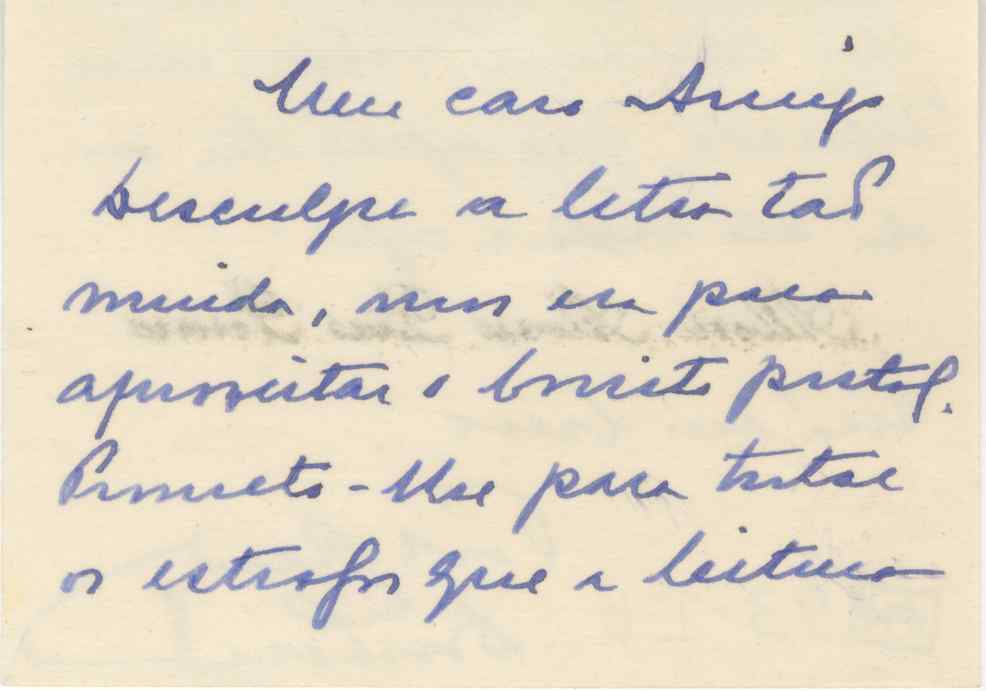 Meu caro Amigo
Desculpe a letra tão
miuda, mas era para
aproveitar o bonito postal.
Prometo-lhe para tratar
os estragos que a leitura